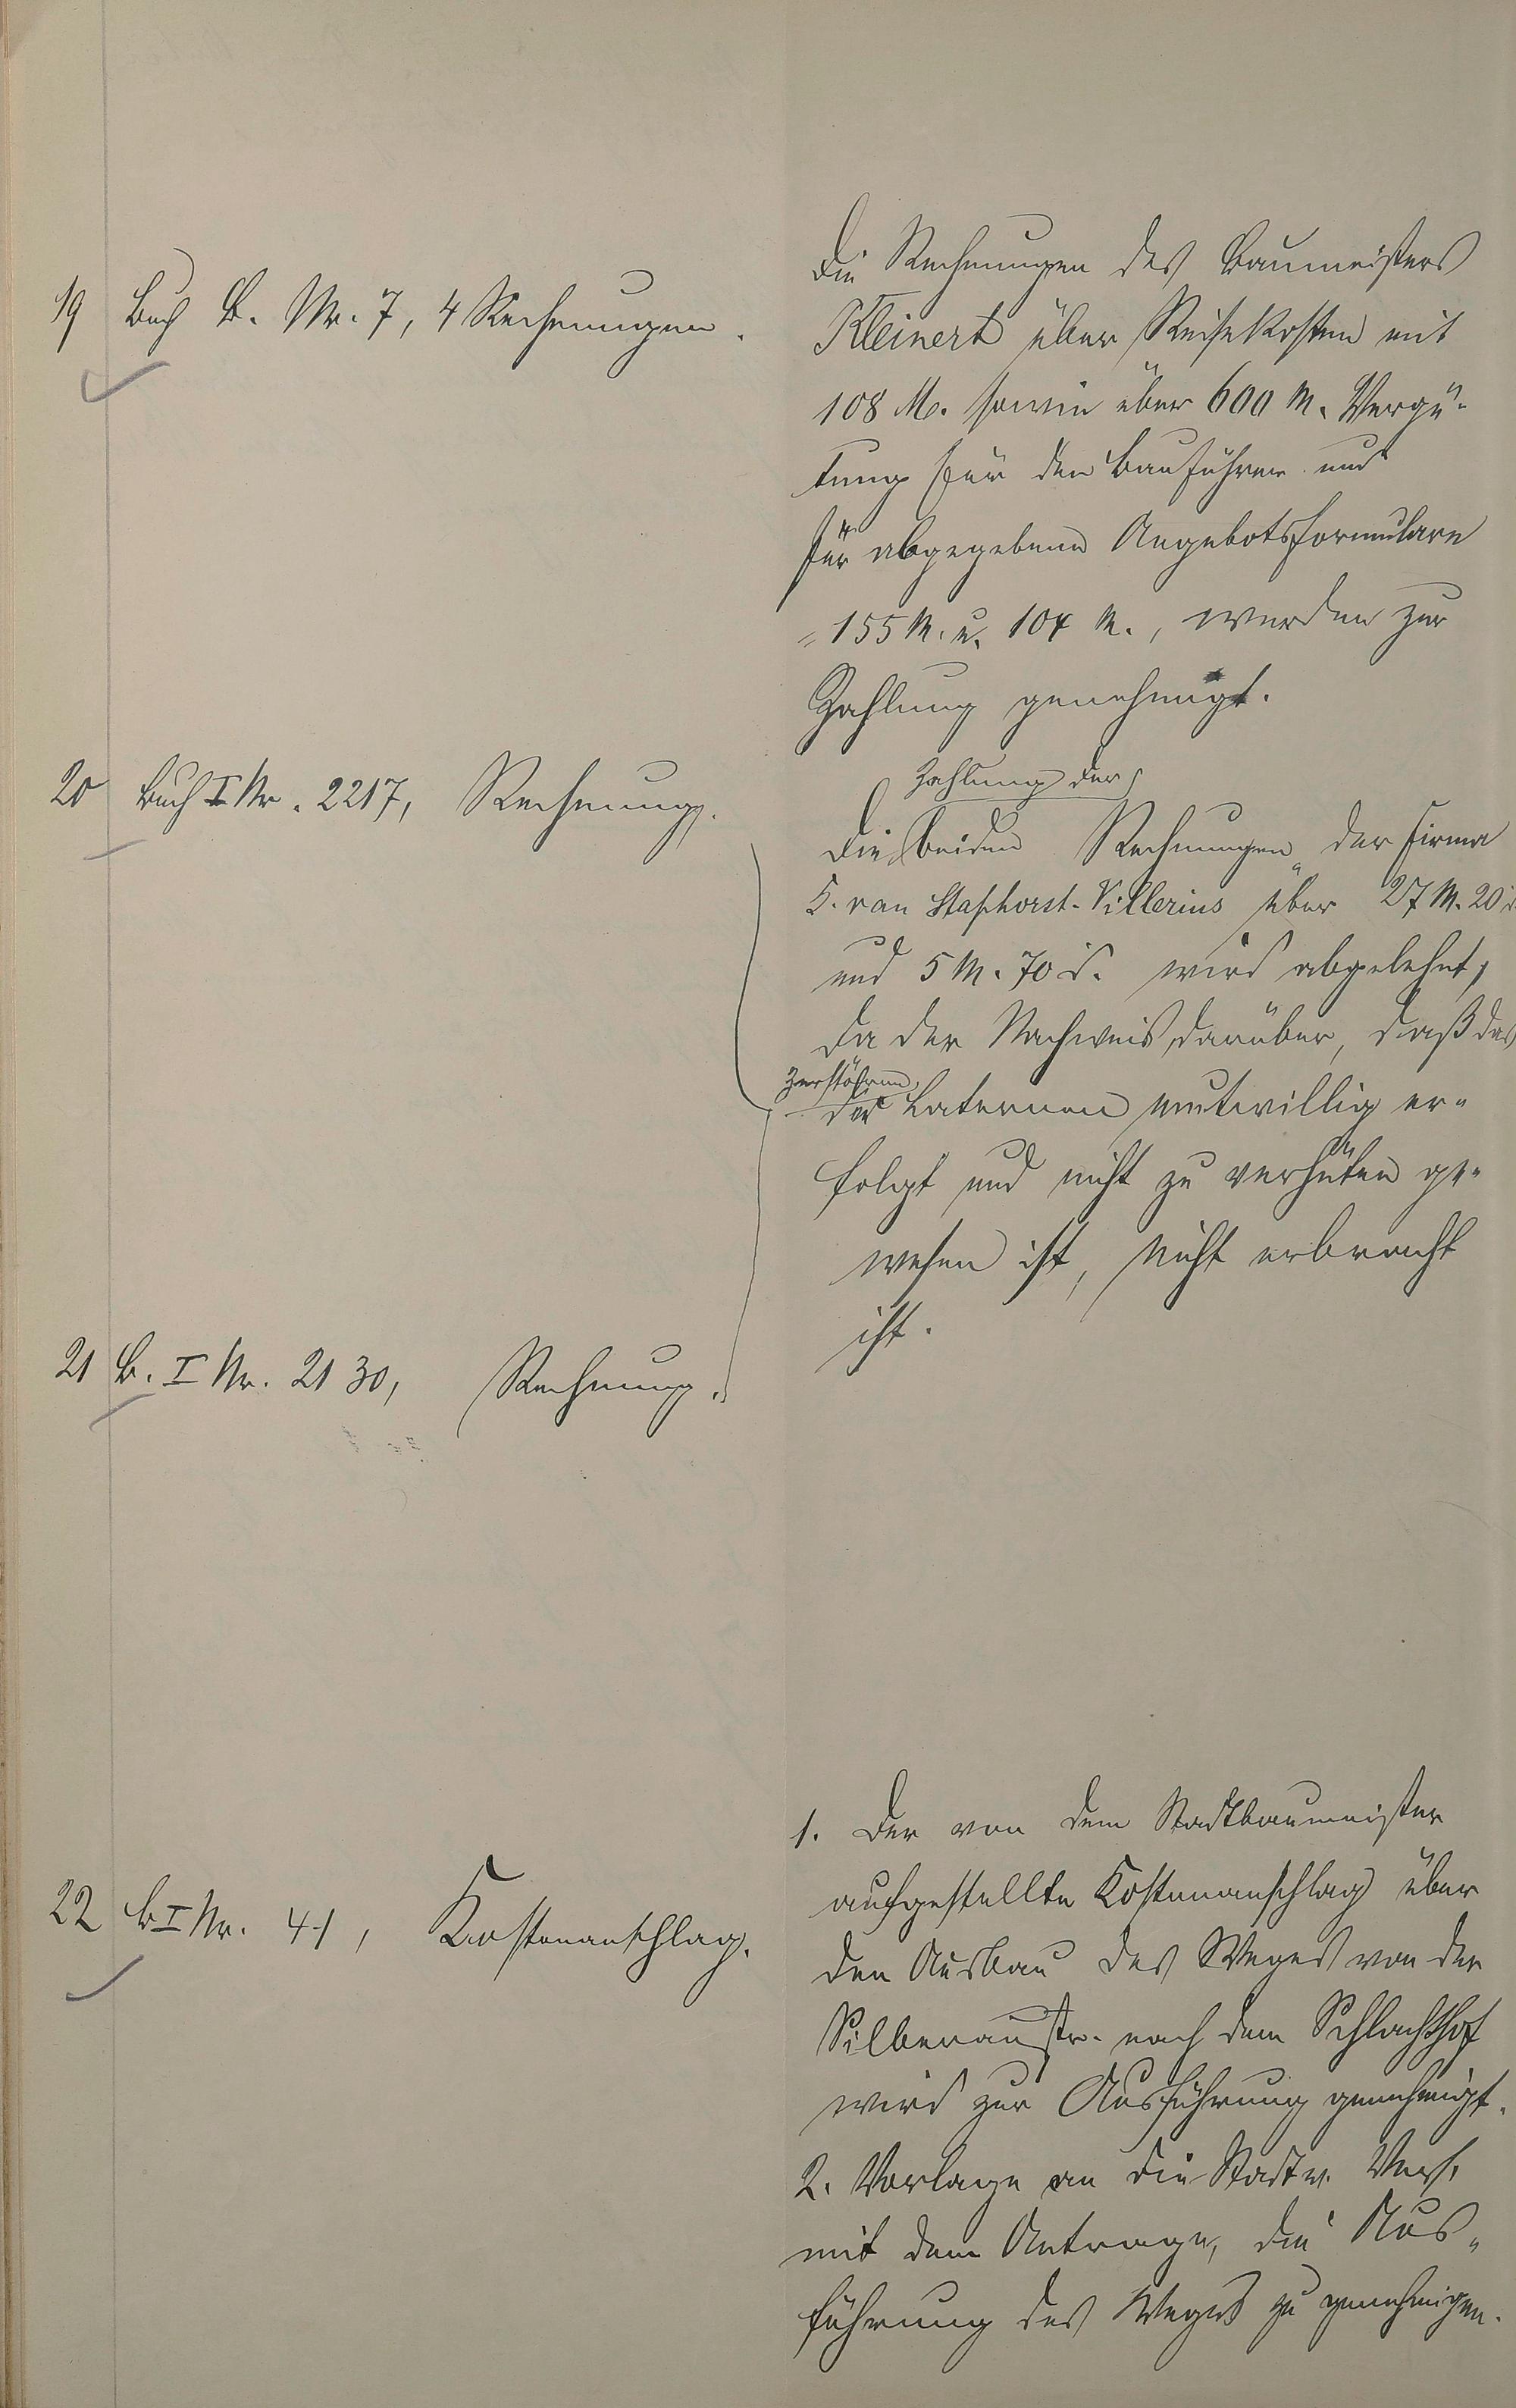 19 Buch B. Nr. 7, 4 Rechnungen.
Die Rechnungen des Baumeisters
Kleinert über Reisekosten mit
108 M. sowie über 600 M. Vergü-
tung für den Bauführer und
für abgegebene Angebotsformulare
= 155 M. u. 104 M., werden zur
Zahlung genehmigt.
20 Buch I Nr. 2217, Rechnung.
Zahlung der
Die beiden Rechnungen der Firma
K. van Staphorst-Villerius über 27 M. 20
und 5 M. 70 d. wird abgelehnt,
da der Nachweis darüber, daß das
Zerstören
der Laternen mutwillig er-
folgt und nicht zu verhüten ge-
wesen ist, nicht erbracht
ist.
21 B. I Nr. 2130, Rechnung.
22 B I Nr. 41, Kostenanschlag.
1. Der von dem Stadtbaumeister
aufgestellte Kostenanschlag über
den Ausbau des Weges von der
Silberaustr. nach dem Schlachthof
wird zur Ausführung genehmigt.
2. Vorlage an die Stadtv. Vers.
mit dem Antrage, die Aus-
führung des Weges zu genehmigen.